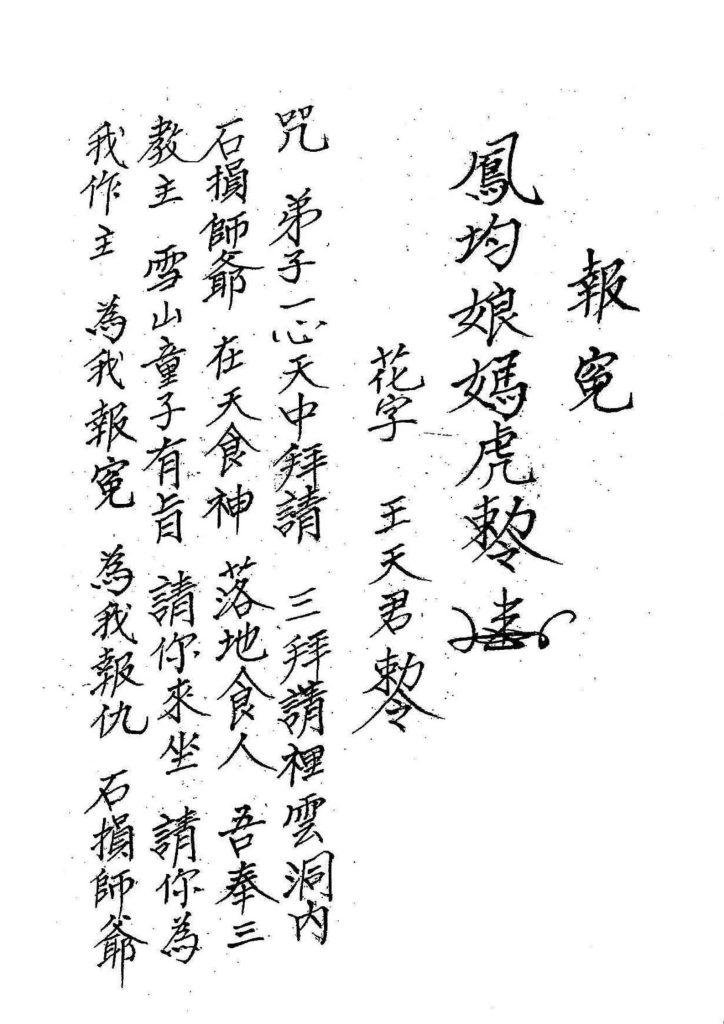 報寃
鳳均娘媽虎勅令
花字 王天君勅令
咒 弟子一心天中拜請 三拜請裡雲洞內
石損師爺 在天食神 落地食人 吾奉三
教主 雪山童子有旨 請你來坐 請你為
我作主 為我報寃 為我報仇 石損師爺